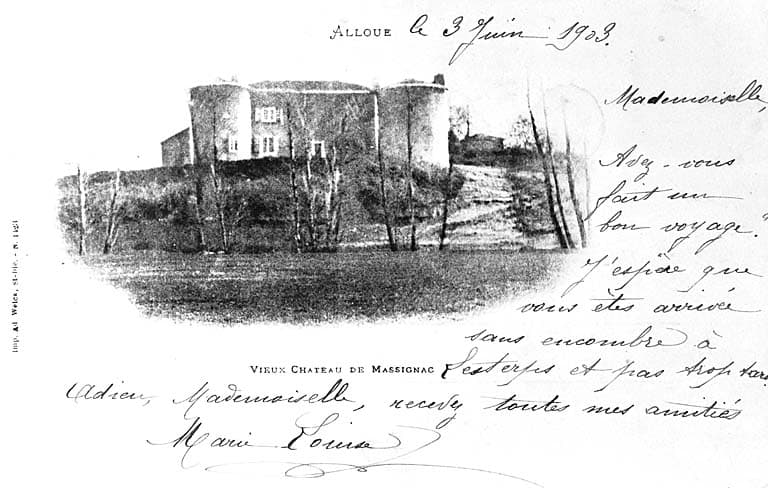 ALLOUE le 3 Juin 1903.
Mademoiselle,
Avez-vous
fait un
bon voyage?
J'espère que
vous êtes arrivée
sans encombre à
VIEUX CHATEAU DE MASSIGNAC Lesterps et pas trop tard
Adieu, Mademoiselle, recevez toutes mes amitiés
Marie Louise
Imp. Ad Weick, St-Dié. - N.